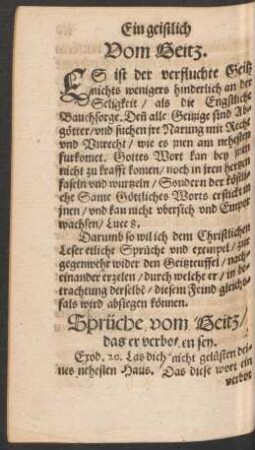 Ein geistlich
Vom Geitz.
ES ist der verfluchte Geitz
nichts wenigers hinderlich an der
Seligkeit / als die Engstliche
Bauchsorge. Deñ alle Geitzige sind Ab-
götter / und suchen jre Narung mit Recht
und Vnrecht / wie es jnen am nehesten
furkomet. Gottes Wort kan bey jnen
nicht zu krafft komen / noch in jren hertzen
faseln und wurtzeln / Sondern der köstli-
che Same Göttliches Worts erstickt in
jnen / und kan nicht ubersich und Empor
wachsen / Luce 8.
Darumb so wil ich dem Christlichen
Leser etliche Sprüche und exempel / zur
gegenwehr wider den Geitzteuffel / nach-
einander erzelen / durch welche er / in be-
trachtung derselbē / diesem Feind gleich-
fals wird absiegen können.
Sprüche vom Geitz /
das er verboten sey.
Exod. 20. Las dich nicht gelüsten dei-
nes nehesten Haus. Das diese wort ein
verbot